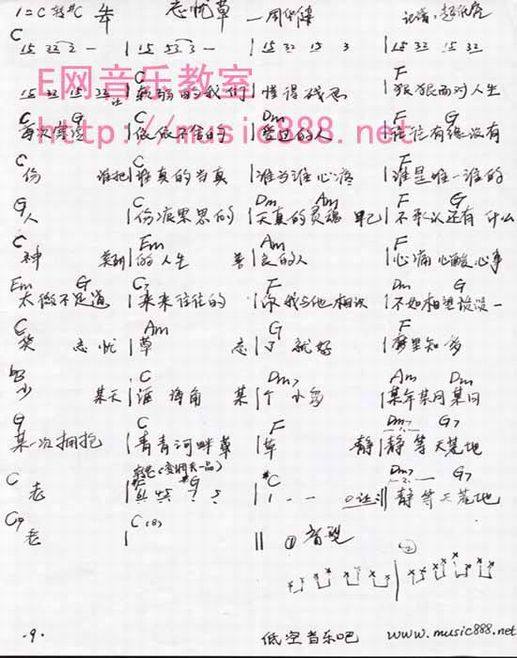 1=C 转#C 4/4 忘忧草 —周华健 记谱:
C
15 32 3 - | 15 53 3 - | 15 32 15 3 | 15 33 15 32
E网音乐教室
C F
15 32 15 33 让 | 软弱的我们 | 懂得残忍 | 狠狠面对人生
C G C F
每次寒冷 | 依依不舍的 | 爱过的人 | 往往有缘没有
http://music888.net
C C F
份 谁把 | 谁真的当真 | 谁为谁心疼 | 谁是唯一谁的
G C Dm Am F G
人 | 伤痕累累的 | 天真的灵魂 早已 | 不承认还有 什么
C Em Am F
神 美丽 | 的人生 善 | 良的人 | 心痛心酸心事
Em G C7 F Dm G
太微不足道 | 来来往往的 | 你我与他相识 | 不如相望淡淡一
C Am G F
笑 忘忧 | 草 忘 | 了就好 | 梦里知多
C Dm7 Am Dm
少 某天 | 涯海角 某 | 个小岛 | 某年某月某日
G C F Dm7 G7
某一次拥抱 | 青青河畔草 | 草 静 | 静等天荒地
C #G #C Dm7 G7
老 | 1 - - 0让 :|| 静等天荒地
老 | || ① 首现 ②
-9-
低空音乐吧 www.music888.net